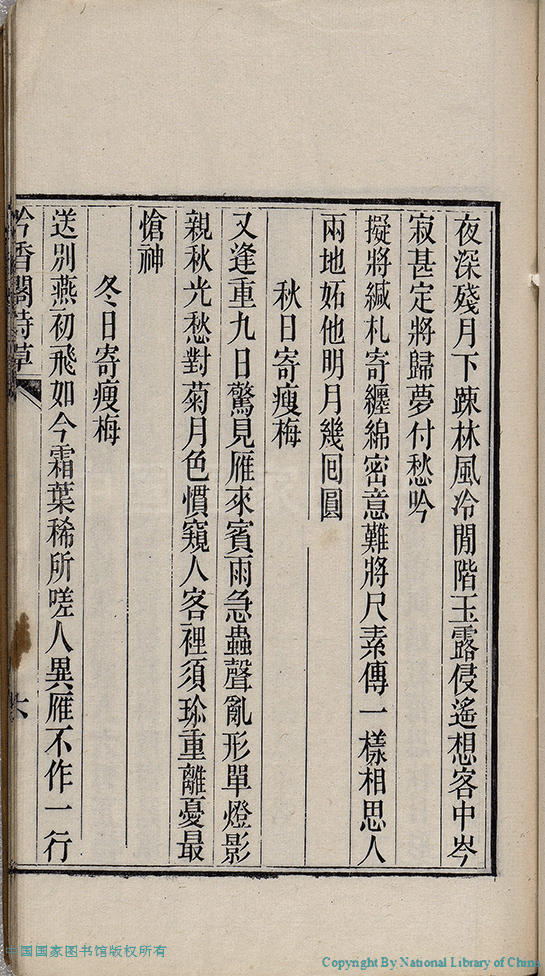 夜深殘月下踈林風冷閒階玉露侵遙想客中岑
寂甚定將歸夢付愁吟
擬將緘札寄纏綿密意難將尺素傳一樣相思人
兩地妬他明月幾囘圓
秋日寄瘦梅
又逢重九日驚見雁來賓雨急蟲聲亂形單燈影
親秋光愁對菊月色慣窺人客裡須珍重離憂最
愴神
冬日寄瘦梅
送別燕初飛如今霜葉稀所嗟人異雁不作一行
吟香閣詩草
六
中国国家图书馆版权所有
Copyright By National Library of China